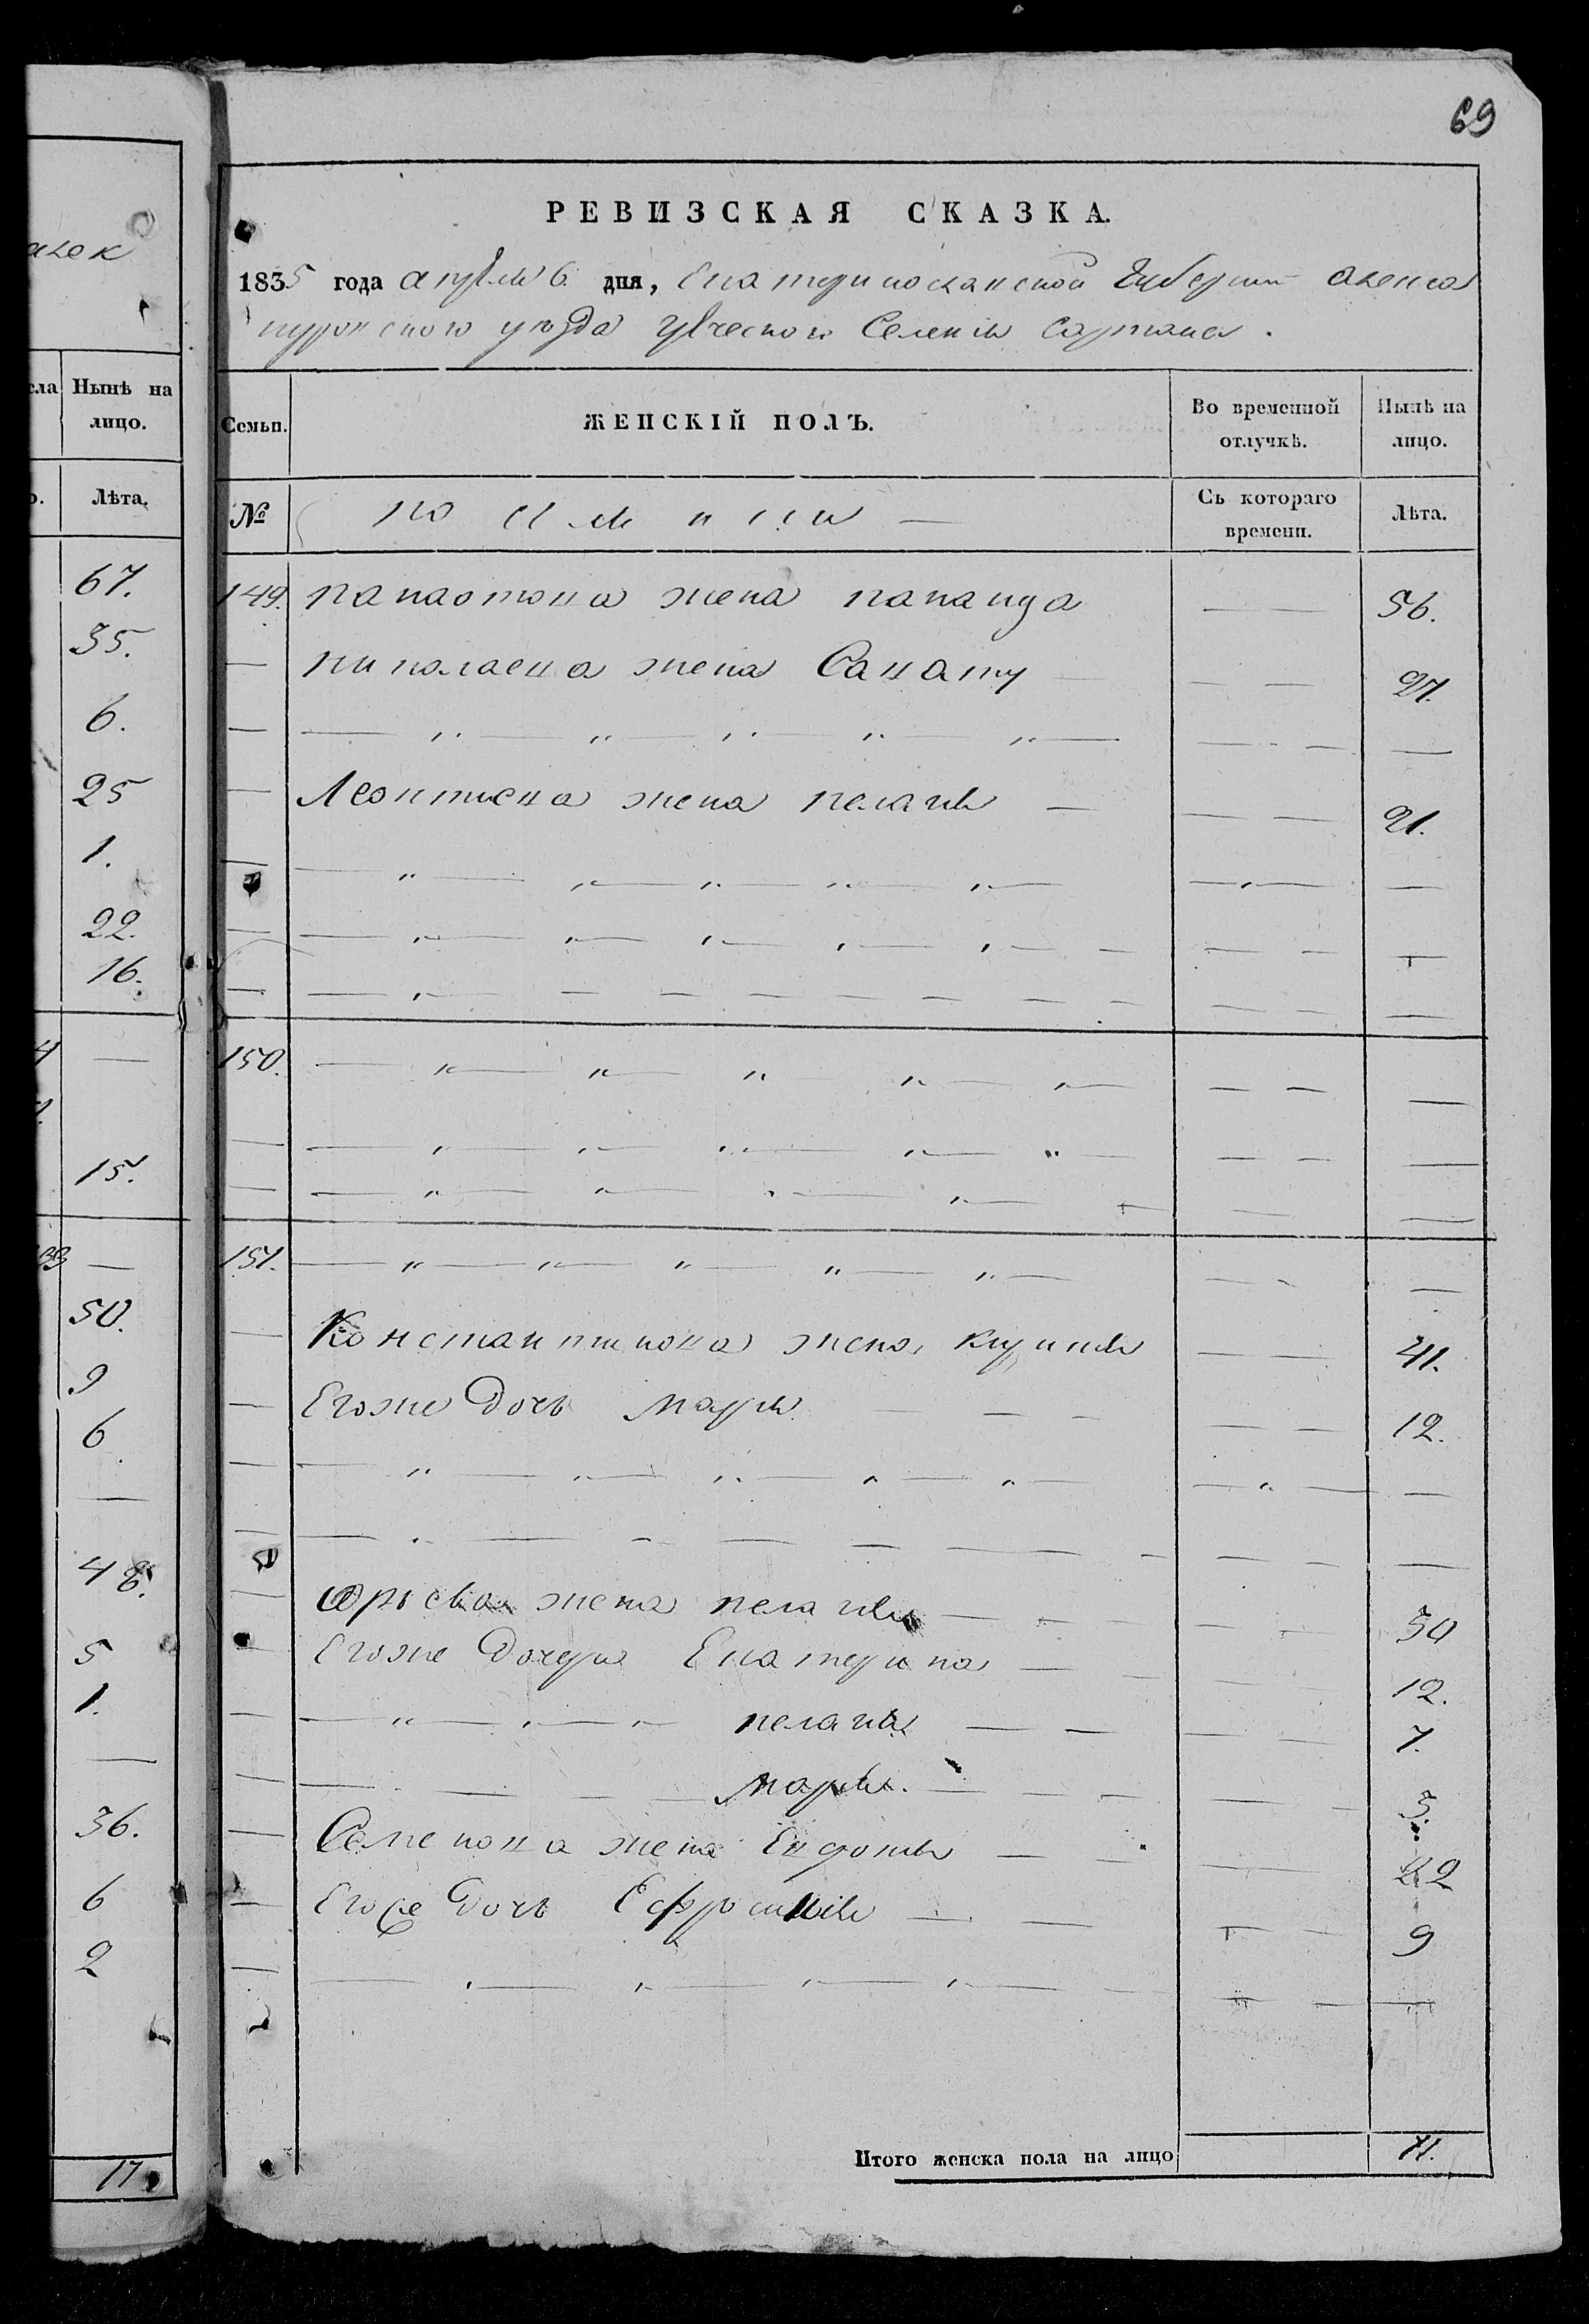 69
РЕВИЗСКАЯ СКАЗКА.
1835 года апреля 6 дня, Екатеринославской Губернии Алекса
ндровского уезда греческого Селения Сартана.
Семьи. ЖЕНСКІЙ ПОЛЪ. Во временной отлучкѣ. Нынѣ на лицо.
№ Съ котораго времени. Лѣта.
149. жена 56.
Николаева жена 27.
Леонтиева жена пелагия 21.
150.
151.
Константинова жена 41.
Егоже Дочь Мария 12.
жена пелагия 30
Егоже Дочери Екатерина 12.
пелагия 7.
Мария. 3.
Семенова жена 22
Дочь Ефросиния 9
Итого женска пола на лицо 11.
алек
сла Нынѣ на лицо.
о. Лѣта.
67.
35.
6.
25
1.
22.
16.
15.
33
50.
9
6
48.
5
1.
36.
6
2
17